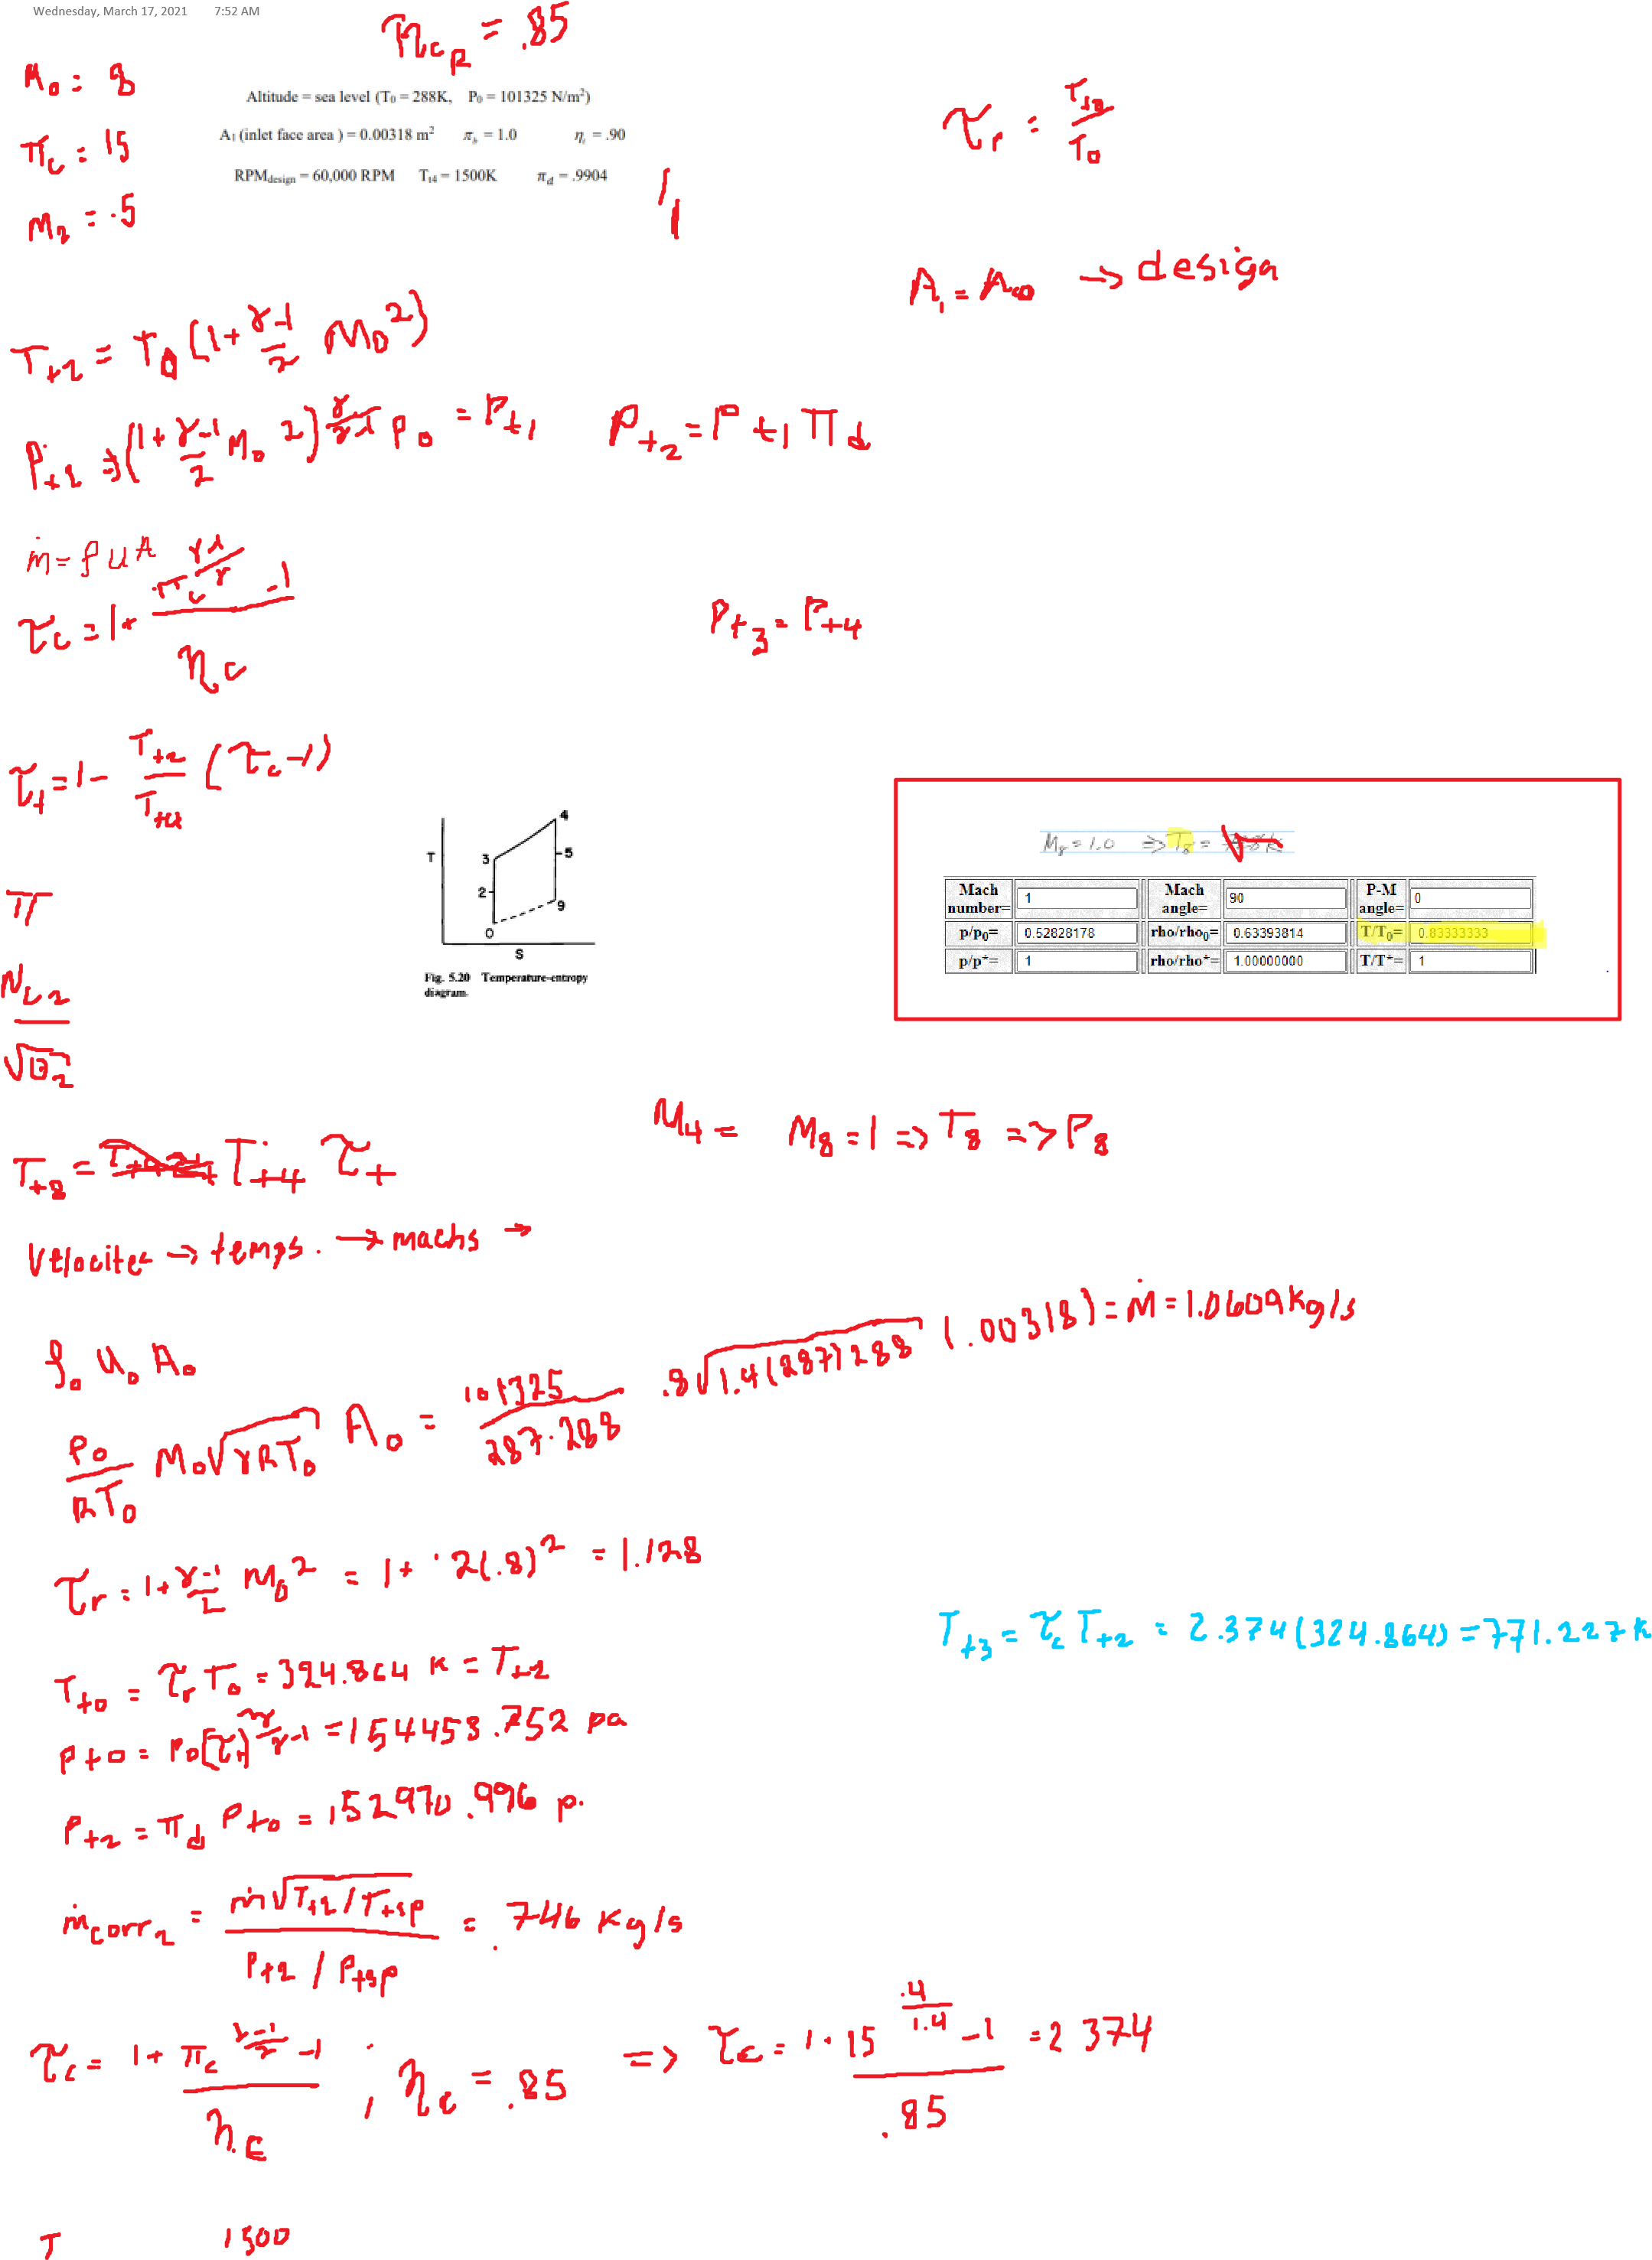 Wednesday, March 17, 2021 7:52 AM
η_cR = .85
M₀ = 8
Altitude = sea level (T₀ = 288K, P₀ = 101325 N/m²)
π_c = 15
A₁ (inlet face area ) = 0.00318 m² π_b = 1.0 η_t = .90
τ_r = T_t0 / T₀
RPM_design = 60,000 RPM T_t4 = 1500K π_d = .9904
M₂ = .5
A₁ = A∞ → design
T_t2 = T₀ (1 + (γ-1)/2 M₀²)
P_t2 ⇒ (1 + (γ-1)/2 M₀ 2)^(γ/(γ-1)) P₀ = P_t1 P_t2 = P_t1 π_d
ṁ = ρ u A
τ_c = 1 + (π_c^((γ-1)/γ) - 1) / η_c
P_t3 = P_t4
τ_t = 1 - T_t2 / T_t4 (τ_c - 1)
T 3 2 0 4 5 9 S
Fig. 5.20 Temperature-entropy
diagram.
M₈ = 1.0 ⇒ T₈ =
Mach number= 1 Mach angle= 90 P-M angle= 0
p/p₀= 0.52828178 rho/rho₀= 0.63393814 T/T₀= 0.83333333
p/p*= 1 rho/rho*= 1.00000000 T/T*= 1
π
N_c2 / √θ₂
M₄ = M₈ = 1 ⇒ T₈ ⇒ P₈
T_t8 = T_t4 τ_t
→ temps. → machs →
ρ₀ u₀ A₀
P₀ / RT₀ M₀ √γRT₀ A₀ = 101325 / 287·288 .8 √1.4(287)288 (.00318) = ṁ = 1.0609 kg/s
τ_r = 1 + (γ-1)/2 M₀² = 1 + .2(.8)² = 1.128
T_t3 = τ_c T_t2 = 2.374(324.864) = 771.227 K
T_t0 = τ_r T₀ = 324.864 K = T_t2
P_t0 = P₀[τ_r]^(γ/(γ-1)) = 154453.752 pa
P_t2 = π_d P_t0 = 152970.996 p.
ṁ_corr2 = ṁ √T_t2 / T_tsp / P_t2 / P_tsp = .746 kg/s
τ_c = 1 + (π_c^((γ-1)/2) - 1) / η_c ; η_c = .85 ⇒ τ_c = 1 + (15^(.4/1.4) - 1) / .85 = 2 374
T 1500